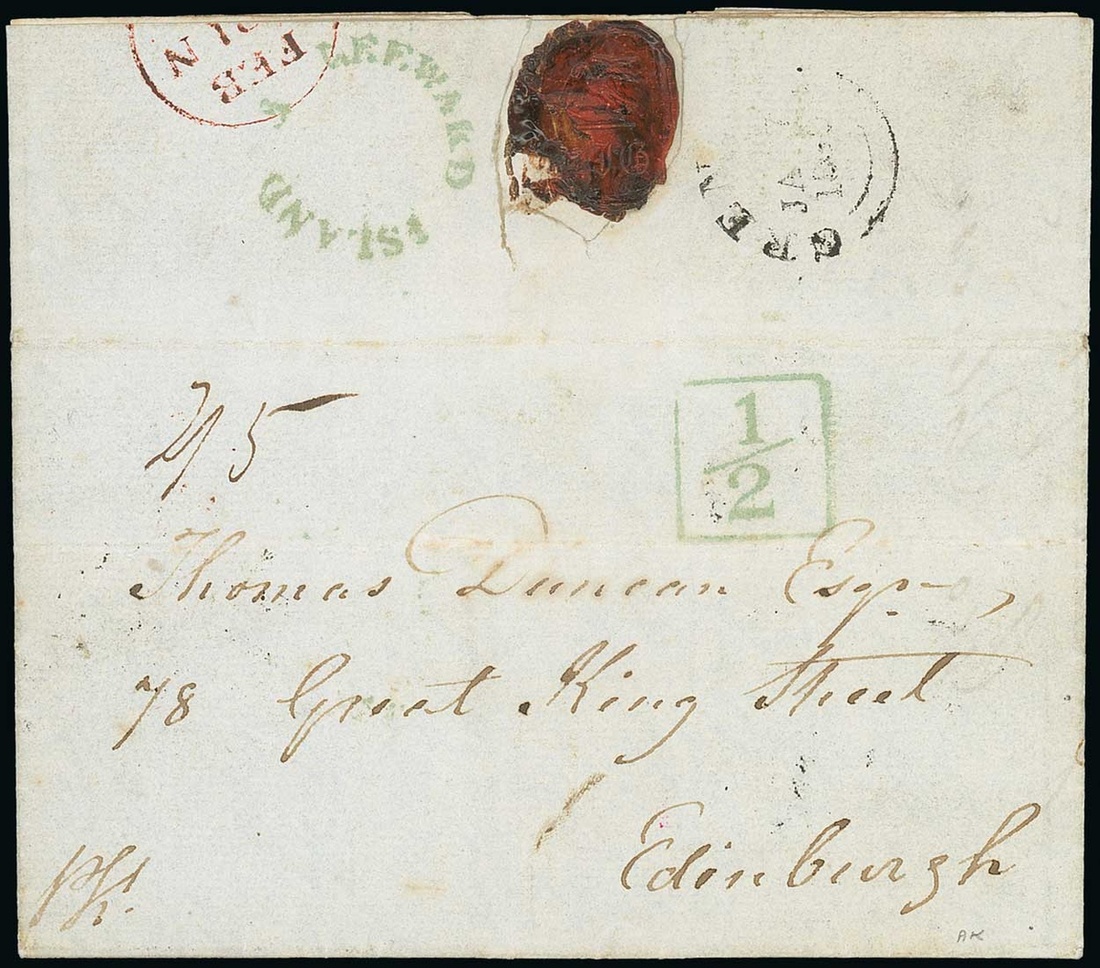 FEB
LEEWARD
ISLAND
GREN
JA
1
2
Thomas Duncan Esqr,
78 Great King Street
Edinburgh
AK